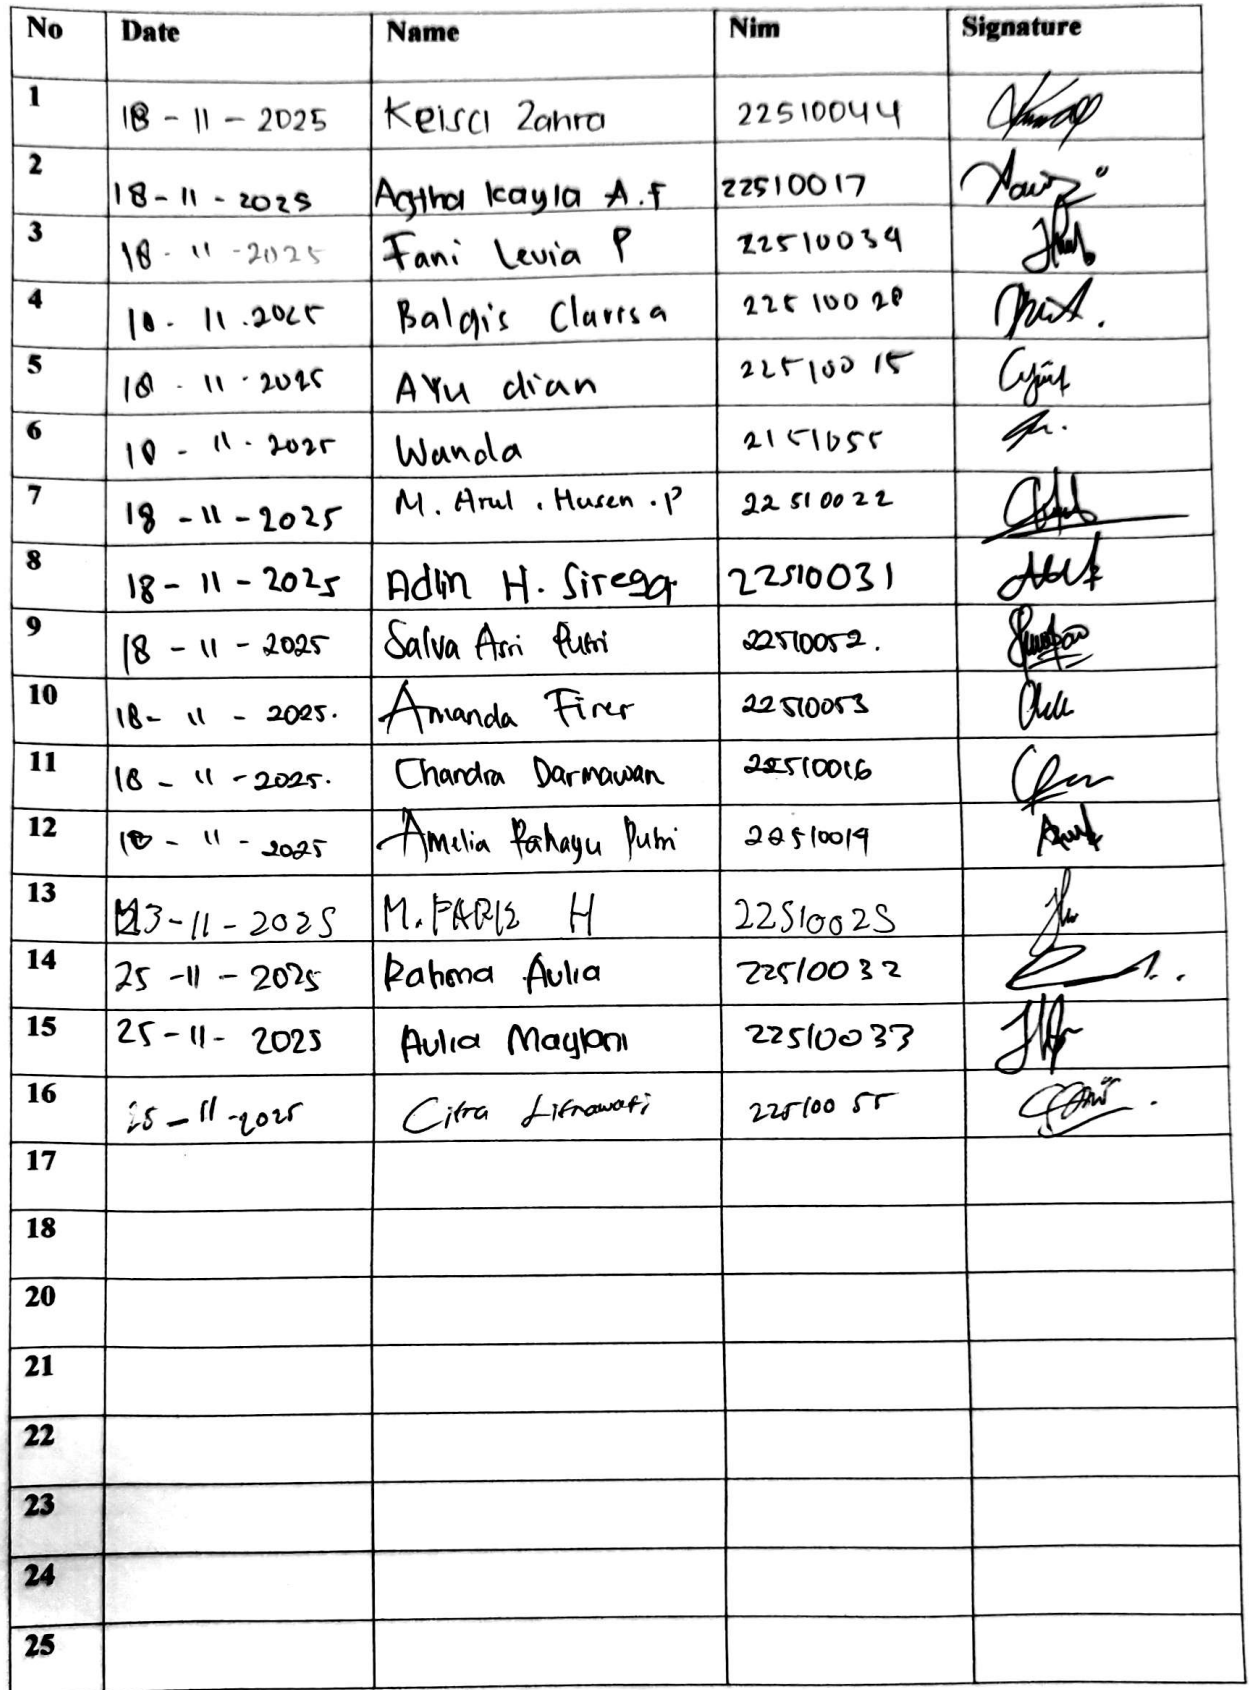 No Date Name Nim Signature
1 18 - 11 - 2025 Keisa Zahra 22510044
2 18 - 11 - 2025 Agtha kayla A.F 22510017
3 18 - 11 - 2025 Fani Levia P 22510034
4 18 . 11 . 2025 Balqis Clarrsa 22510028
5 18 - 11 - 2025 Ayu dian 22510015
6 18 - 11 - 2025 Wanda 2151055
7 18 - 11 - 2025 M. Arul . Husen . P 22510022
8 18 - 11 - 2025 Adlin H. Siregar 22510031
9 18 - 11 - 2025 Salva Asri Putri 22510052.
10 18 - 11 - 2025. Amanda 22510053
11 18 - 11 - 2025. Chandra Darmawan 22510016
12 18 - 11 - 2025 Amelia Rahayu Putri 22510019
13 23 - 11 - 2025 M. FARIZ H 22510025
14 25 - 11 - 2025 Rahma Aulia 22510032
15 25 - 11 - 2025 Aulia Mayloni 22510033
16 25 - 11 - 2025 Citra 22510055
17
18
20
21
22
23
24
25